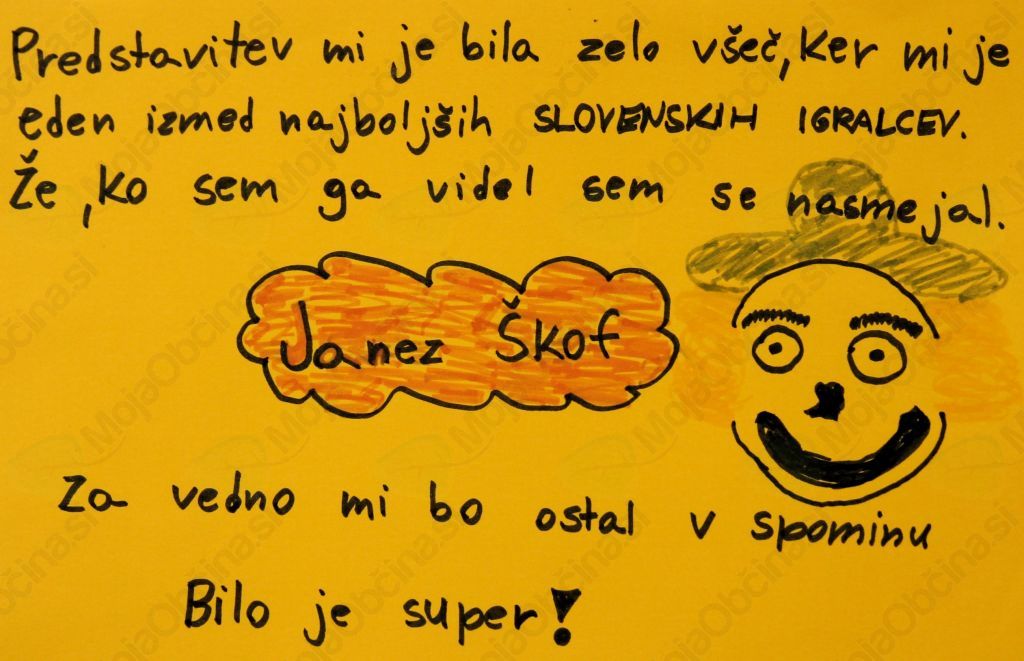 Predstavitev mi je bila zelo všeč, ker mi je
eden izmed najboljših SLOVENSKIH IGRALCEV.
Že, ko sem ga videl sem se nasmejal.
Janez Škof
Za vedno mi bo ostal v spominu
Bilo je super!
MojaObčina.si